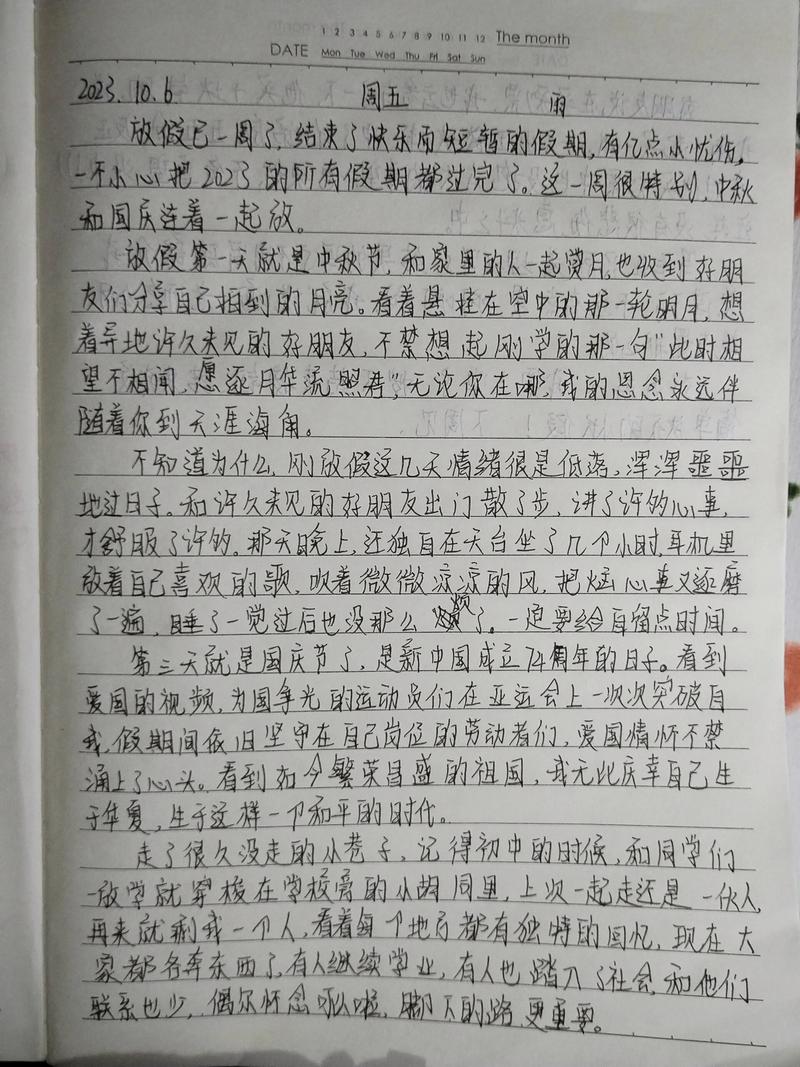 1 2 3 4 5 6 7 8 9 10 11 12 The month
DATE Mon Tue Wed Thu Fri Sat Sun
2023.10.6 周五 雨
放假已一周了,结束了快乐而短暂的假期,有亿点小忧伤,
一不小心把2023的所有假期都过完了。这一周很特别,中秋
和国庆连着一起放。
放假第一天就是中秋节,和家里的人一起赏月,也收到好朋
友们分享自己拍到的月亮。看着悬挂在空中的那一轮明月,想
着异地许久未见的好朋友,不禁想起刚学的那一句"此时相
望不相闻,愿逐月华流照君",无论你在哪,我的思念永远伴
随着你到天涯海角。
不知道为什么,刚放假这几天情绪很是低落,浑浑噩噩
地过日子。和许久未见的好朋友出门散了步,讲了许多心事,
才舒服了许多。那天晚上,还独自在天台坐了几个小时,耳机里
放着自己喜欢的歌,吹着微微凉凉的风,把烦心事又逐磨
了一遍,睡了一觉过后也没那么烦了。一定要给自留点时间。
第三天就是国庆节了,是新中国成立74周年的日子。看到
爱国的视频,为国争光的运动员们在亚运会上一次次突破自
我,假期间依旧坚守在自己岗位的劳动者们,爱国情怀不禁
涌上了心头。看到如今繁荣昌盛的祖国,我无比庆幸自己生
于华夏,生于这样一个和平的时代。
走了很久没走的小巷子,记得初中的时候,和同学们
一放学就穿梭在学校旁的小胡同里,上次一起走还是一伙人,
再来就剩我一个人,看着每个地方都有独特的回忆,现在大
家都各奔东西了,有人继续学业,有人也踏入了社会,和他们
联系也少,偶尔怀念呗啦,脚下的路更重要。